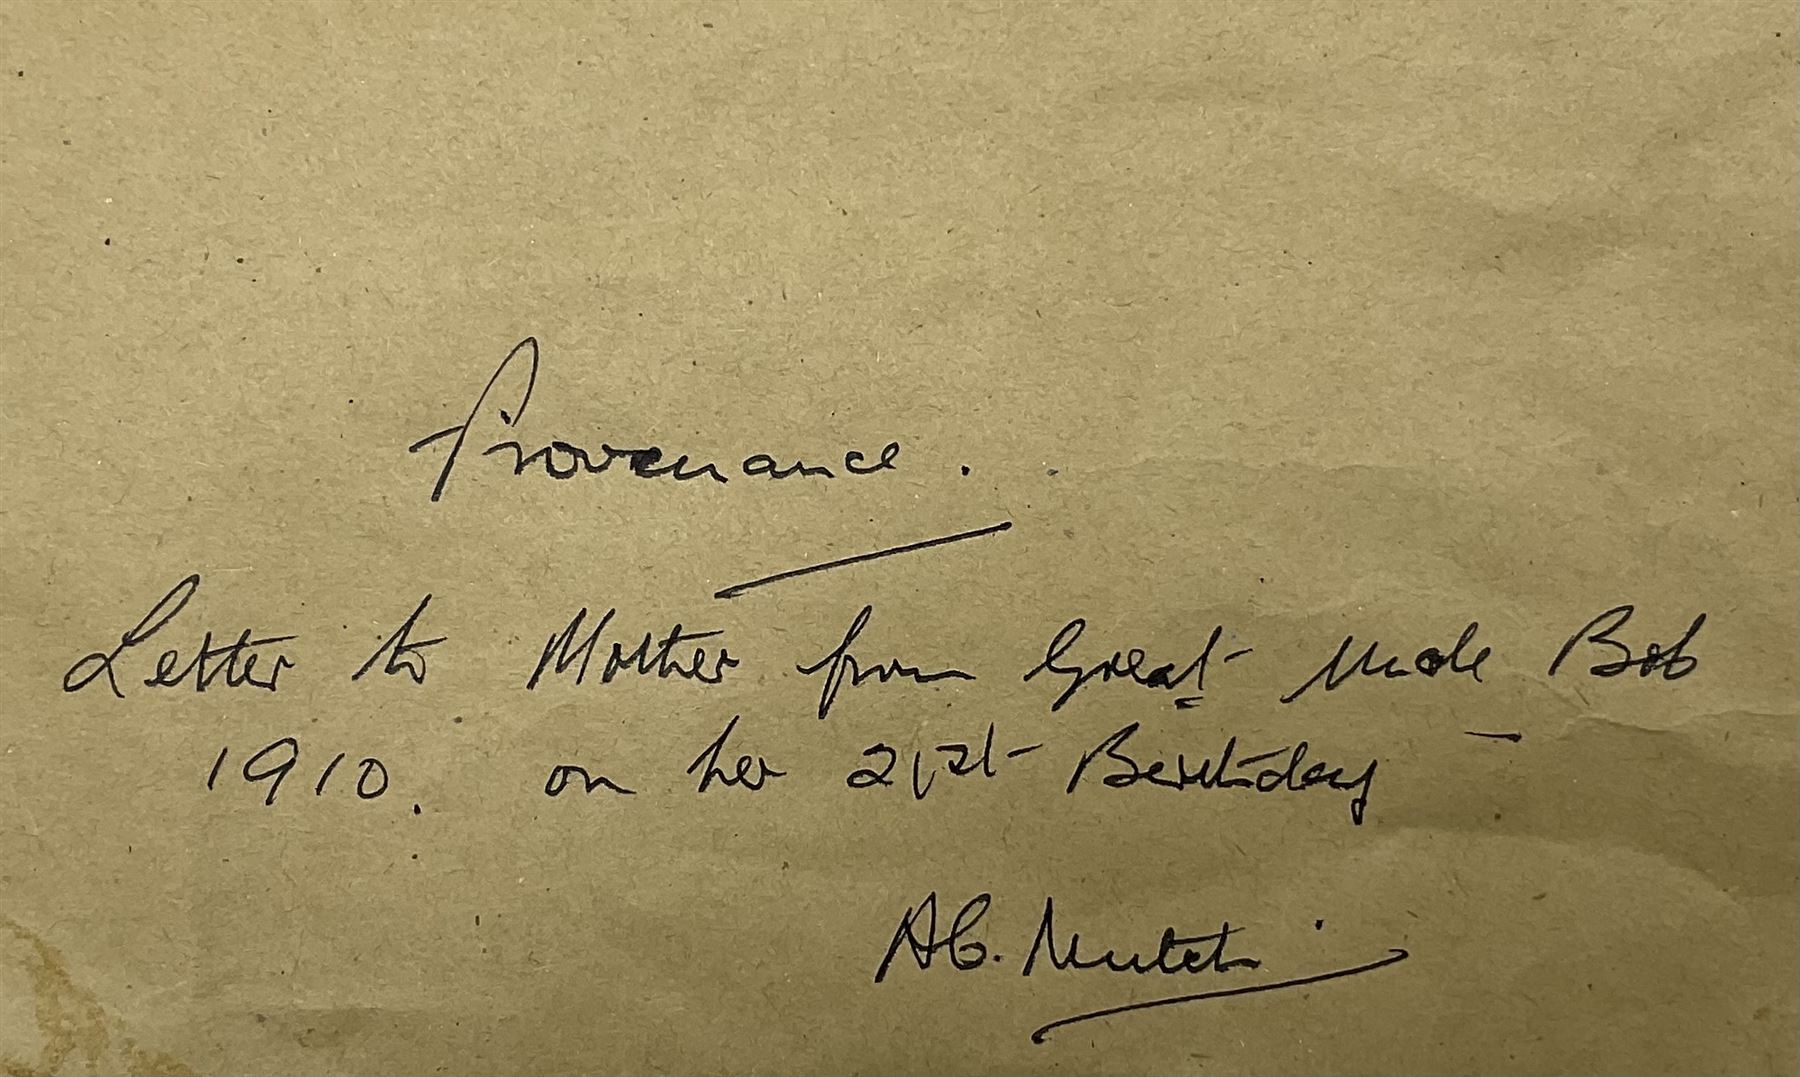 Provenance.
Letter to Mother from Great Uncle Bob
1910. on her 21st Birthday -
A.G. Mutch